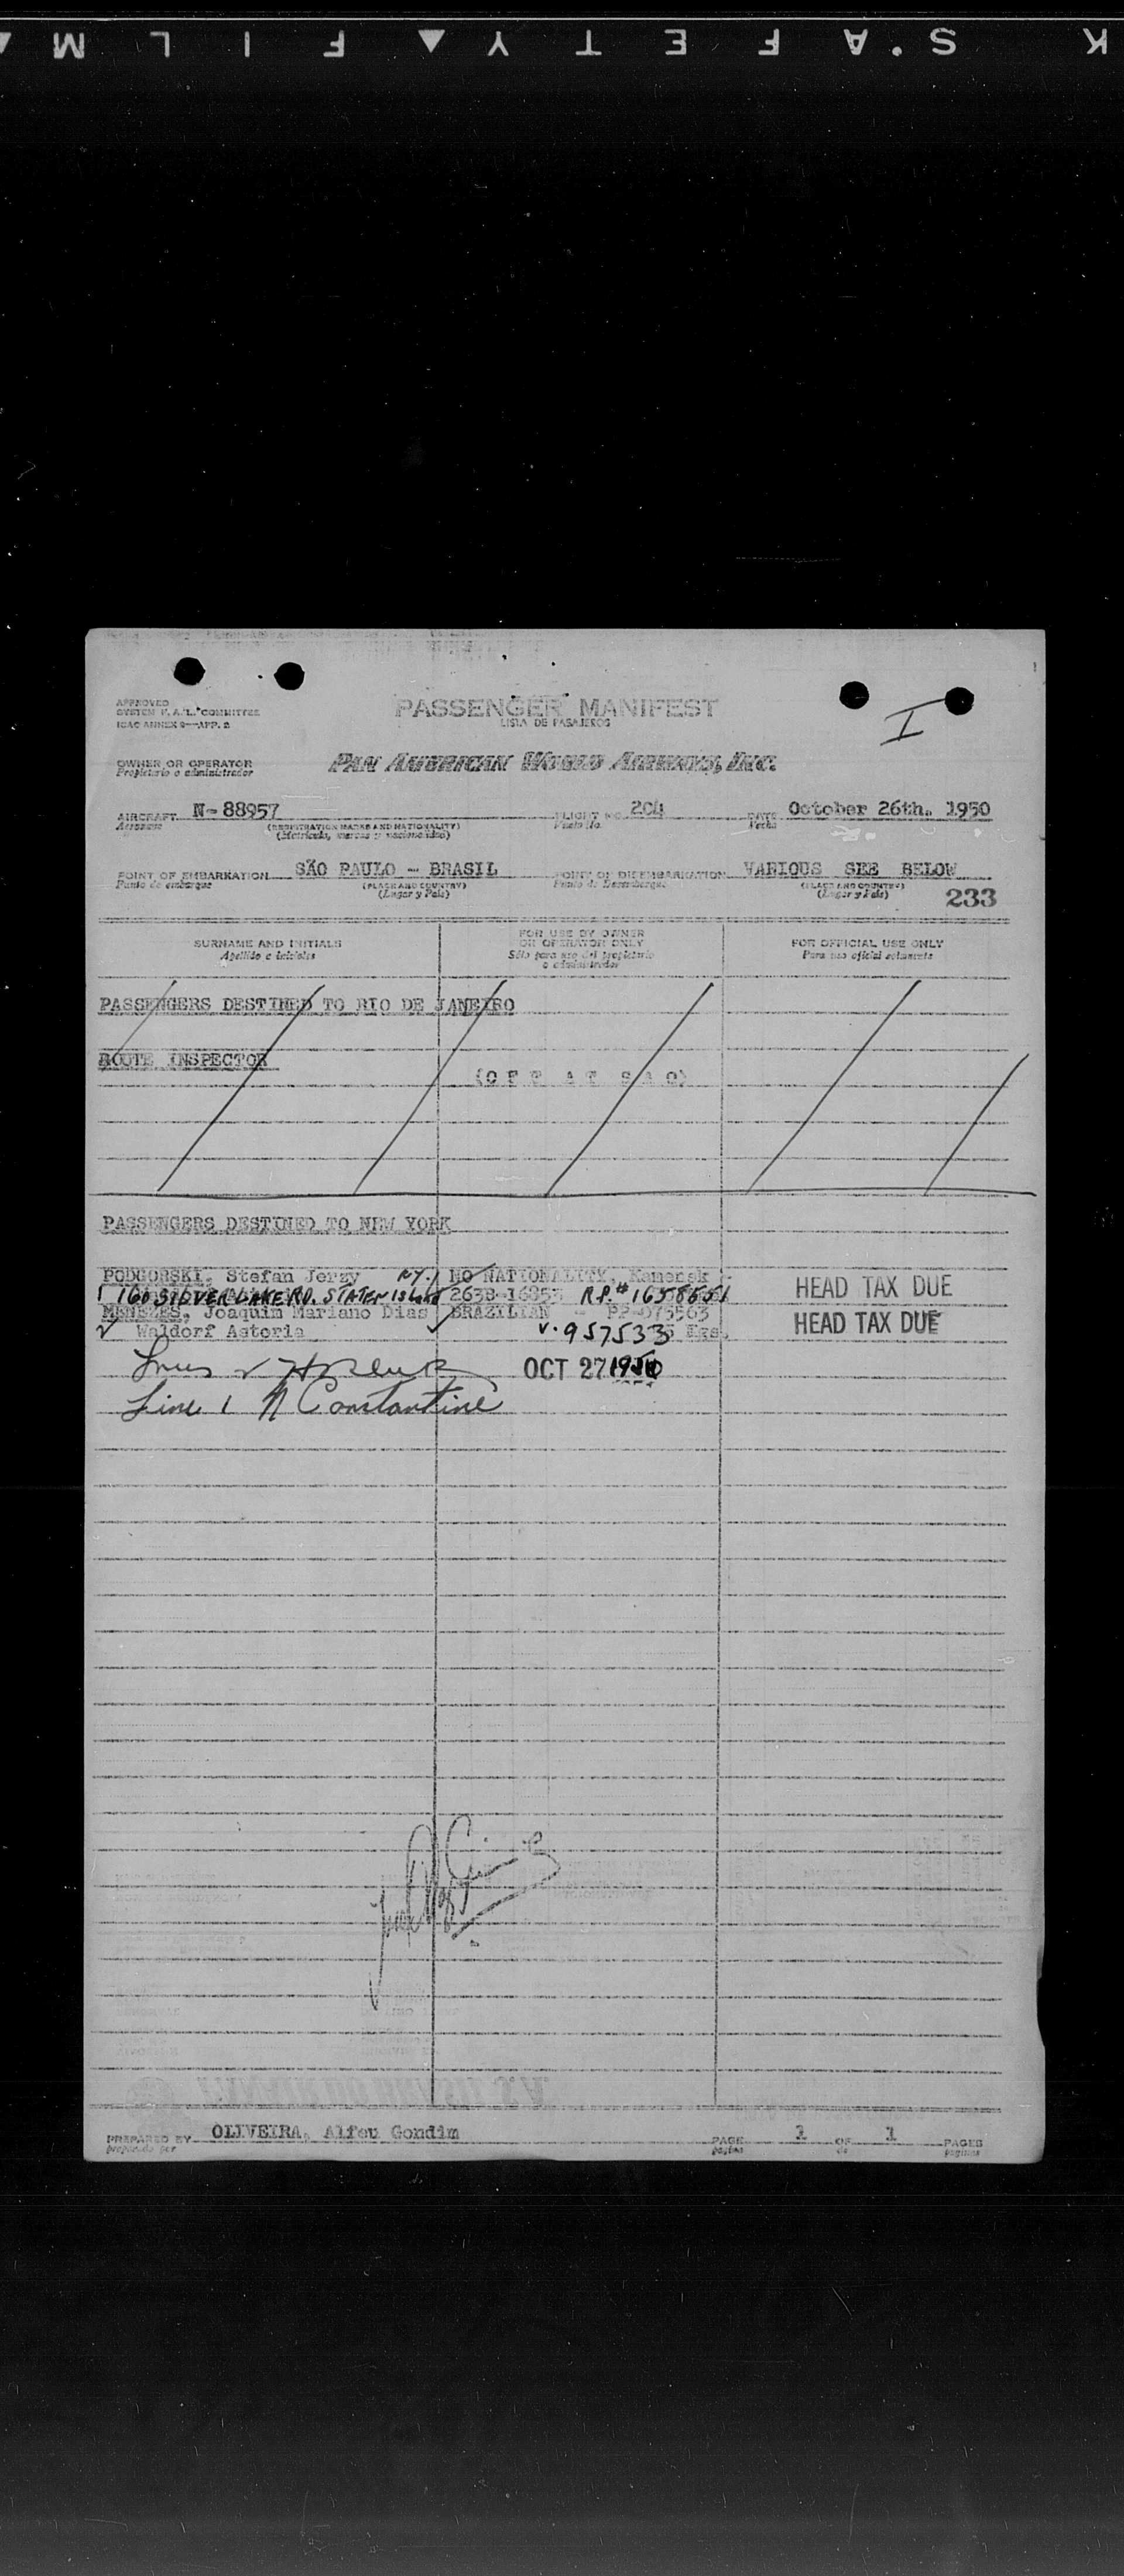 K S'A F E T Y ▲ F I L M ▲
APPROVED
SYSTEM F.A.L. COMMITTEE
ICAO ANNEX 9—APP. 2
PASSENGER MANIFEST
LISTA DE PASAJEROS
I
OWNER OR OPERATOR
Propietario o administrador
PAN AMERICAN WORLD AIRWAYS, INC.
AIRCRAFT N-88957 FLIGHT NO. 204 DATE October 26th. 1950
Aeronave (REGISTRATION MARKS AND NATIONALITY) Vuelo No. Fecha
(Matrícula, marcas y nacionalidad)
POINT OF EMBARKATION SÃO PAULO - BRASIL POINT OF DISEMBARKATION VARIOUS SEE BELOW
Punto de embarque (PLACE AND COUNTRY) Punto de Desembarque (PLACE AND COUNTRY)
(Lugar y País) (Lugar y País) 233
SURNAME AND INITIALS FOR USE BY OWNER OR OPERATOR ONLY FOR OFFICIAL USE ONLY
Apellido e iniciales Sólo para uso del propietario o administrador Para uso oficial solamente
PASSENGERS DESTINED TO RIO DE JANEIRO
ROUTE INSPECTOR
(O F F A T S A O)
PASSENGERS DESTINED TO NEW YORK
PODGORSKI, Stefan Jerzy N.Y. NO NATIONALITY, Kamensk
1 160 SILVER LAKE RD. STATEN Island 2638-16855 R.P.# 1658651 HEAD TAX DUE
MENEZES, Joaquim Mariano Dias BRAZILIAN - PP-075563
Waldorf Astoria V. 957533 Kgs. HEAD TAX DUE
OCT 27 1950
Line 1 N Constantine
PREPARED BY OLIVEIRA, Alfeu Gondim PAGE 1 OF 1 PAGES
preparado por página de páginas